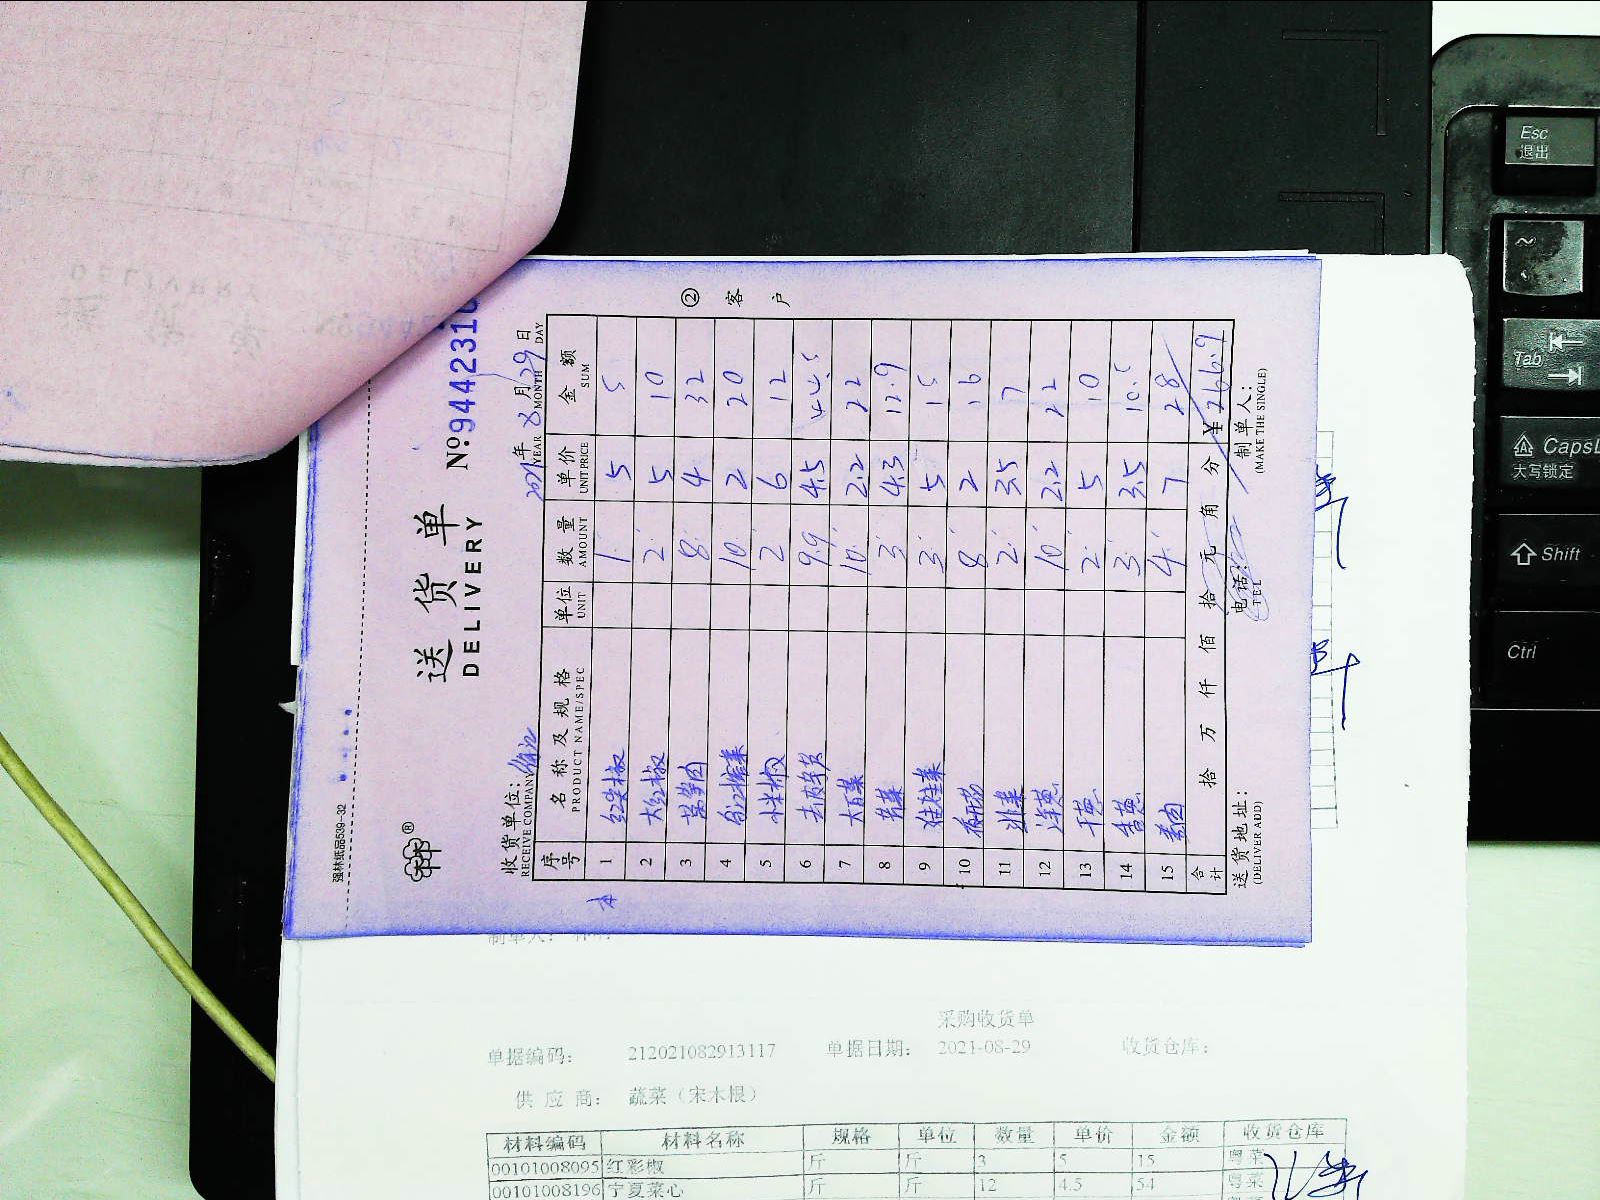 强林纸品539-32
送货单
DELIVERY
№:9442316
收货单位:
RECEIVE COMPANY
2021年 8月29日
YEAR MONTH DAY
序号 名称及规格 单位 数量 单价 金额
PRODUCT NAME/SPEC UNIT AMOUNT UNIT PRICE SUM
1 红尖椒 1 5 5
2 大红椒 2 5 10
3 莴笋肉 8 4 32
4 10 2 20
5 小米椒 2 6 12
6 9.9 4.5 44.5
7 大白菜 10 2.2 22
8 3 4.3 12.9
9 娃娃菜 3 5 15
10 8 2 16
11 2 3.5 7
12 洋葱 10 2.2 22
13 干葱 2 5 10
14 香葱 3 3.5 10.5
15 4 7 28
合计 拾 万 仟 佰 拾 元 角 分 ¥266.9
送货地址:
(DELIVER ADD)
电话:
TEL
制单人:
(MAKE THE SINGLE)
② 客户
采购收货单
单据编码: 212021082913117 单据日期: 2021-08-29 收货仓库:
供应商: 蔬菜（宋木根）
材料编码 材料名称 规格 单位 数量 单价 金额 收货仓库
00101008095 红彩椒 斤 斤 3 5 15 粤菜
00101008196 宁夏菜心 斤 斤 12 4.5 54 粤菜
Esc
退出
~
Tab
CapsL
大写锁定
Shift
Ctrl